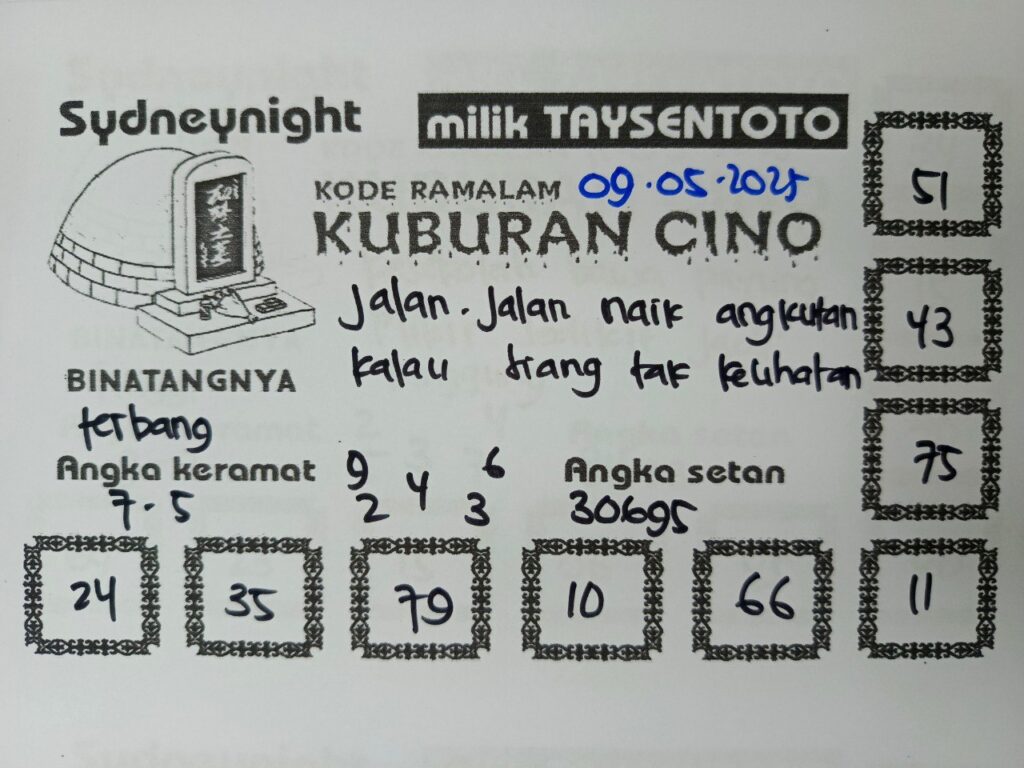 Sydneynight
milik TAYSENTOTO
KODE RAMALAM 09.05.2025
KUBURAN CINO
51
Jalan.Jalan naik angkutan
43
kalau trang tak kelihatan
BINATANGNYA
terbang
75
Angka keramat
7.5
9 4 6
2 3
Angka setan
30695
24 35 79 10 66 11